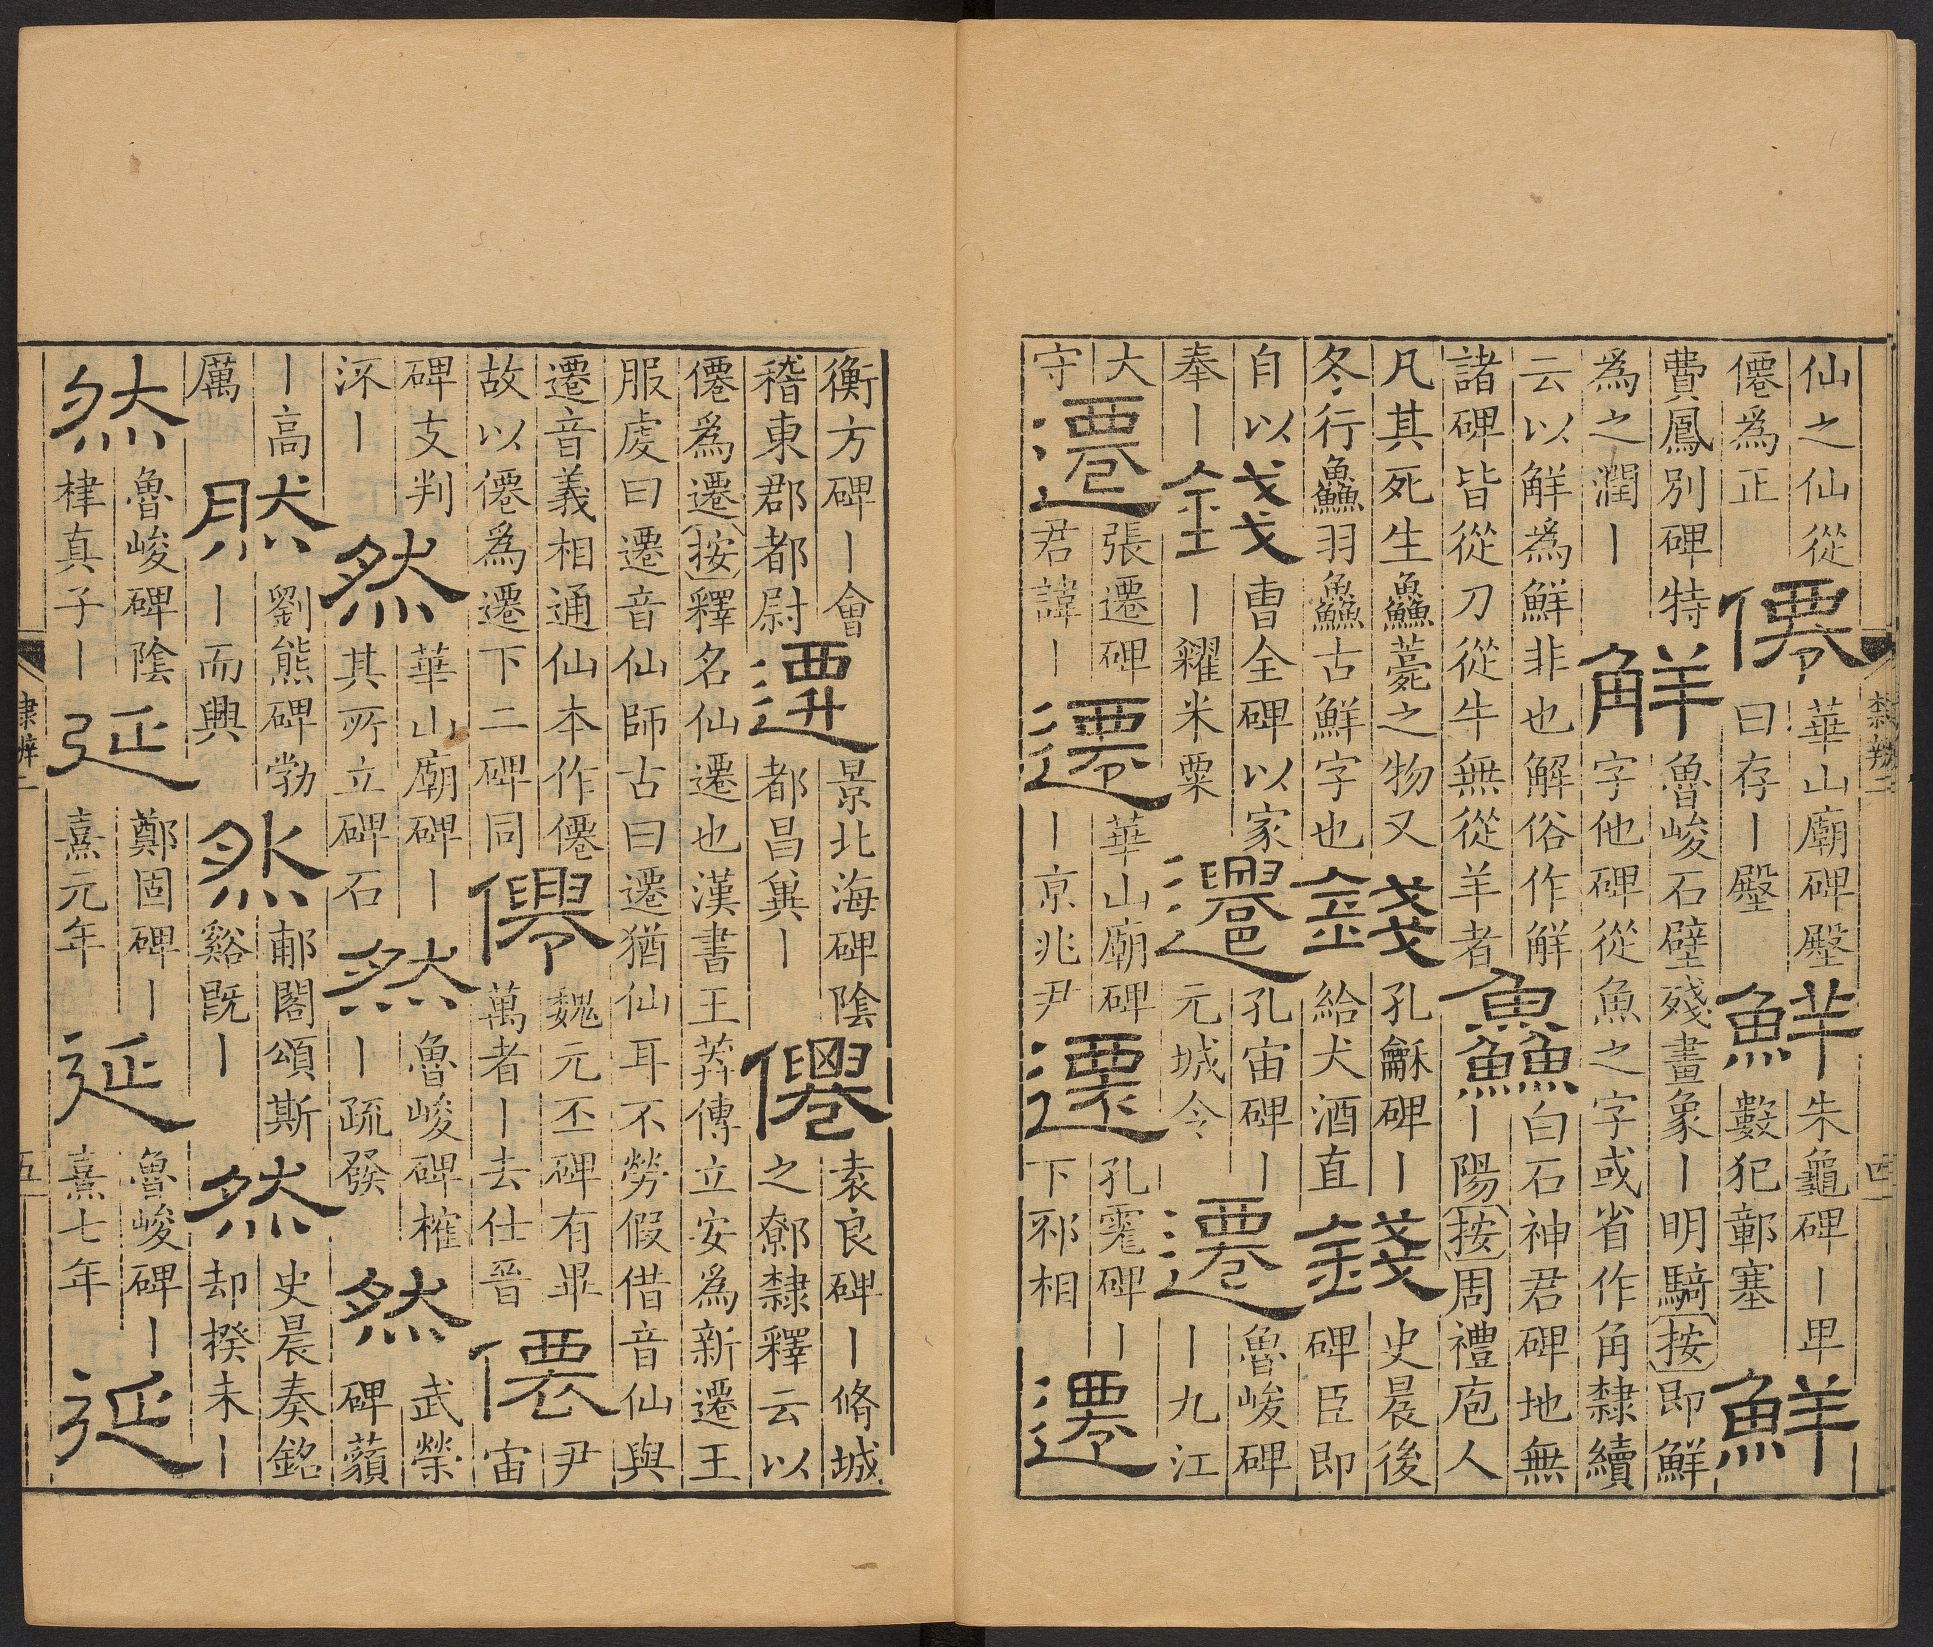 仙之仙從僊為正僊華山廟碑壂曰存丨壂鮮朱龜碑丨卑數犯鄣塞鮮
費鳳別碑特為之潤丨鮮魯峻石壁殘畫象丨明騎按即鮮字他碑從魚之字或省作角隸續
云以觧為鮮非也解俗作觧諸碑皆從刀從牛無從羊者鱻白石神君碑地無丨陽按周禮庖人
凡其死生鱻薧之物又冬行鱻羽鱻古鮮字也錢孔龢碑丨給犬酒直錢史晨後碑臣即
自以奉丨錢曹全碑以家丨糴米粟遷孔宙碑丨元城令遷魯峻碑丨九江
大守遷張遷碑君諱丨遷華山廟碑丨京兆尹遷孔霮碑丨下邳相遷
隸辨二
四
衡方碑丨會稽東郡都尉遷景北海碑陰都昌冀丨僊袁良碑丨脩城之鄡隸釋云以
僊爲遷按釋名仙遷也漢書王莽傳立安為新遷王服虔曰遷音仙師古曰遷猶仙耳不勞假借音仙與
遷音義相通仙本作僊故以僊為遷下二碑同僊魏元丕碑有畢萬者丨去仕晉僊尹宙
碑支判流丨然華山廟碑丨其所立碑石然魯峻碑㩁丨疏發然武榮碑蘋
丨高厲然劉熊碑勃丨而興然郙閣頌斯谿既丨然史晨奏銘却揆未丨
然魯峻碑陰棣真子丨延鄭固碑丨熹元年延魯峻碑丨熹七年延
隸辨二
五